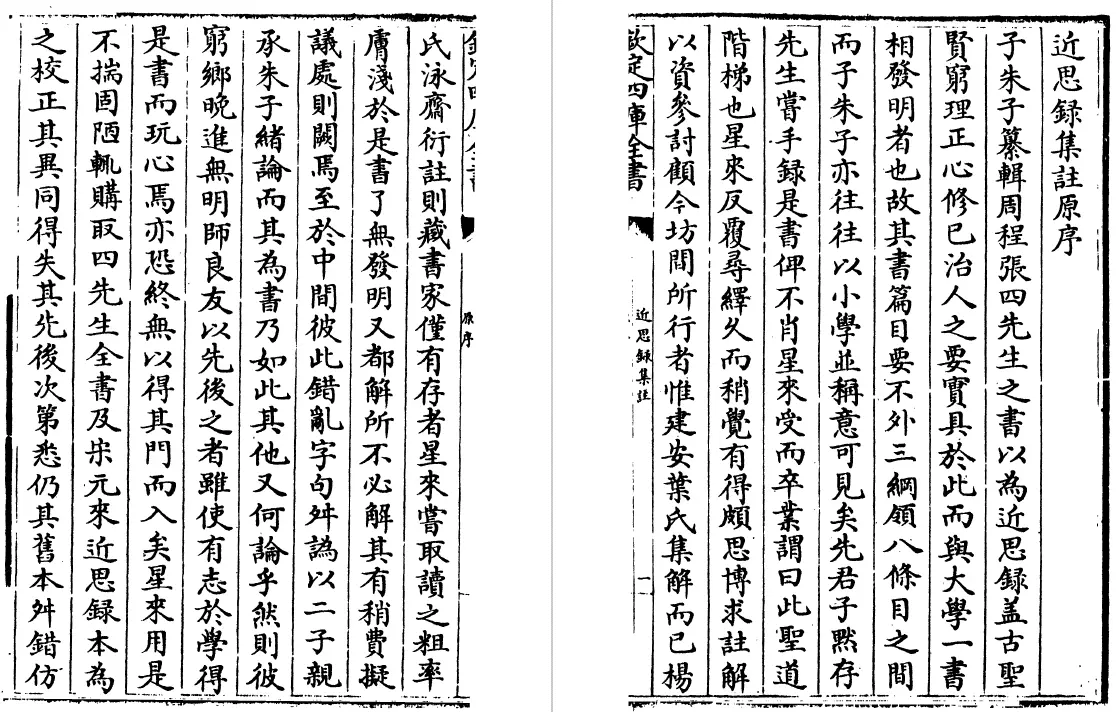 近思録集註原序
子朱子纂輯周程張四先生之書以為近思録盖古聖
賢窮理正心修已治人之要實具於此而與大學一書
相發明者也故其書篇目要不外三綱領八條目之間
而子朱子亦往往以小學並稱意可見矣先君子黙存
先生嘗手録是書俾不肖星來受而卒業謂曰此聖道
階梯也星來反覆尋繹久而稍覺有得頗思博求註解
以資參討顧今坊間所行者惟建安葉氏集解而已楊
欽定四庫全書
近思録集註
一
原序
氏泳齋衍註則藏書家僅有存者星來嘗取讀之粗率
膚淺於是書了無發明又都解所不必解其有稍費擬
議處則闕焉至於中間彼此錯亂字句舛譌以二子親
承朱子緒論而其為書乃如此其他又何論乎然則彼
窮鄉晚進無明師良友以先後之者雖使有志於學得
是書而玩心焉亦恐終無以得其門而入矣星來用是
不揣固陋輒購取四先生全書及宋元來近思録本為
之校正其異同得失其先後次第悉仍其舊本舛錯仿